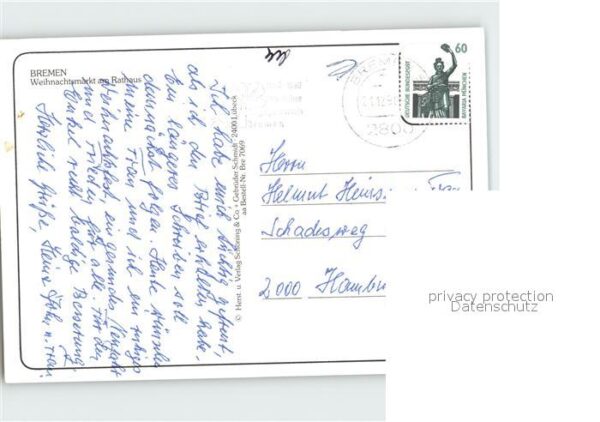 BREMEN
Weihnachtsmarkt am Rathaus
Ich habe mich richtig gefreut,
als ich den Brief erhalten habe.
Ein längeres Schreiben soll
demnächst folgen. Heute wünschen
meine Frau und ich ein ruhiges
Weihnachtsfest, ein gesundes Neujahr
und Frieden für alle. Für den
Enkel recht baldige Besserung!
Herzliche Grüße, Heinz u. Frau
© Herst. u. Verlag Schöning & Co. + Gebrüder Schmidt 2400 Lübeck
aa Bestell-Nr. Bre 7069
BREM
2800
60
DEUTSCHE BUNDESPOST
BAVARIA MÜNCHEN
Herrn
Helmut
Schadesweg
2000 Hambu
privacy protection
Datenschutz